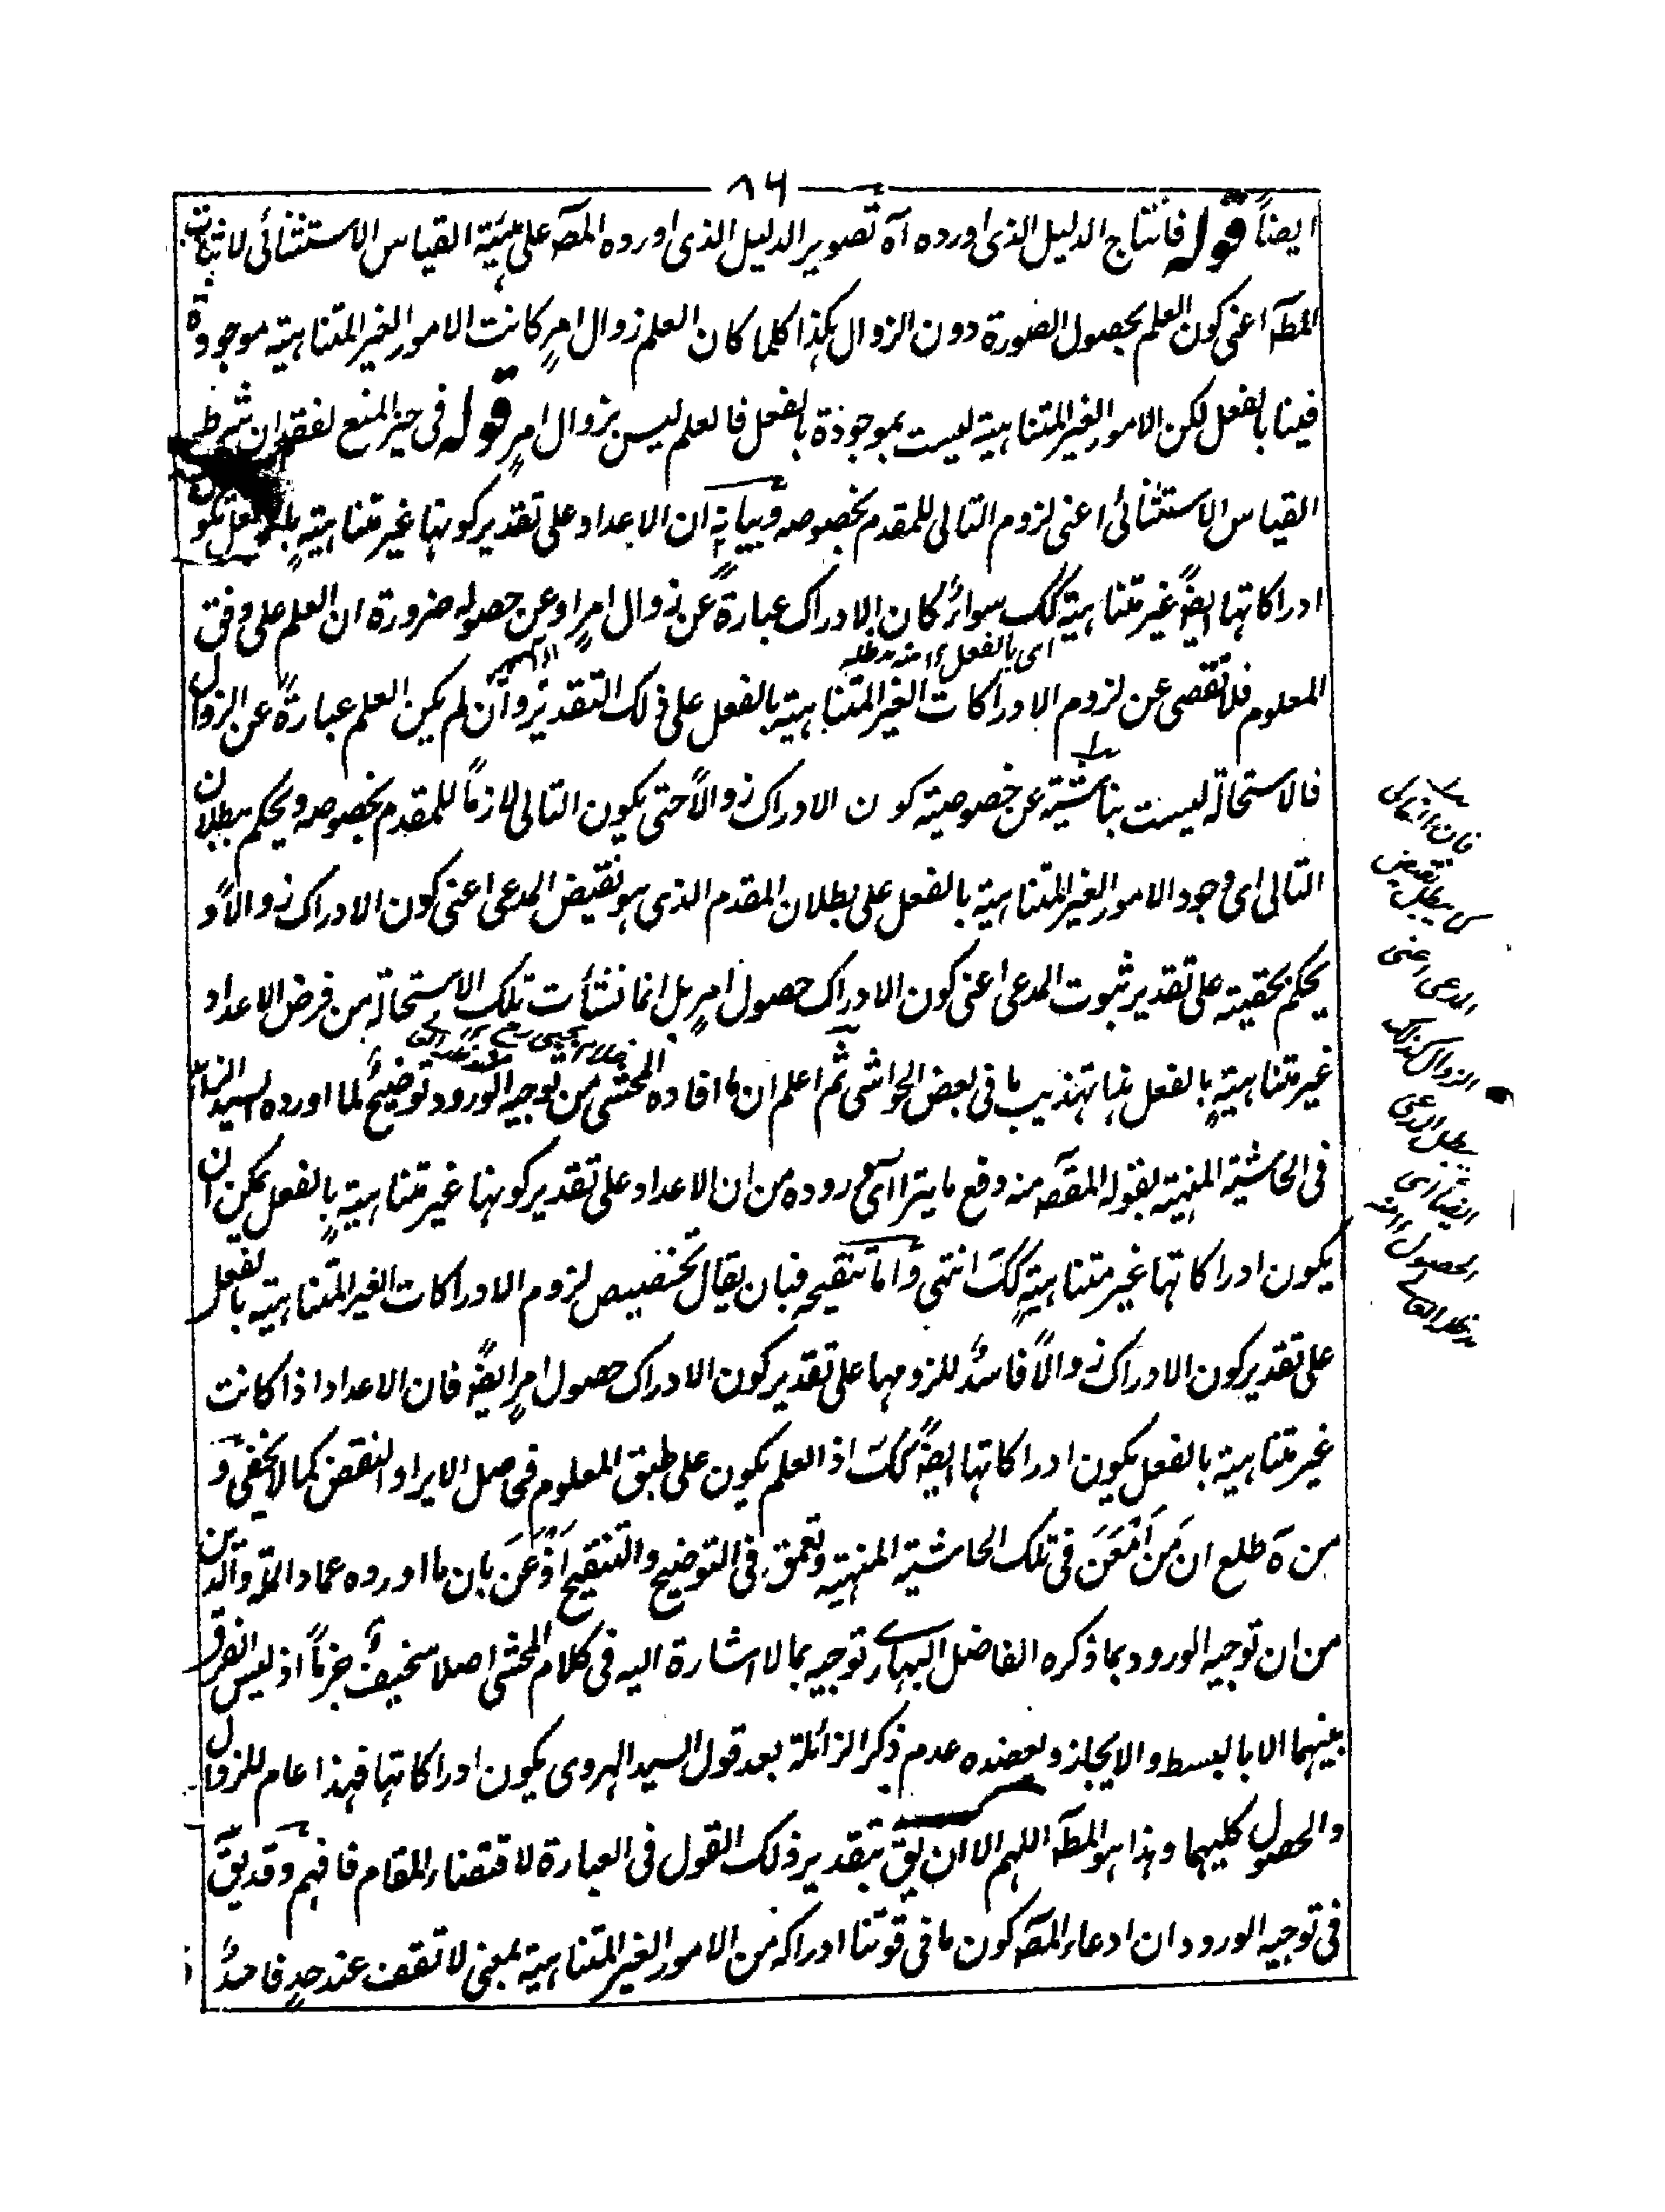 ٨٤
ايضاً قوله فانتاج الدليل الذى اورده آه تصوير الدليل الذى اورده المصه على هيئة القياس الاستثنائى لاثبات
المطه اعنى كون العلم بحصول الصورة دون الزوال هكذا كلما كان العلم زوال امرٍ كانت الامور الغير المتناهية موجودة
فينا بالفعل لكن الامور الغير المتناهية ليست بموجودة بالفعل فالعلم ليس بزوال امرٍ قوله فى حيز المنع لفقدان شرط
القياس الاستثنائى اعنى لزوم التالى للمقدم بخصوصه وبيانه ان الاعداد على تقدير كونها غير متناهيةٍ بالفعل تكون
ادراكاتها ايضً غير متناهية كك سواءٌ كان الادراك عبارةً عن زوال امرٍ اوعن حصوله ضرورة ان العلم على وفق
اى بالفعل ١٢ منه مدظله
المعلوم فلا تفصى عن لزوم الادراكات الغير المتناهية بالفعل على ذلك التقدير وان لم يكن العلم عبارةً عن الزوال
فالاستحالة ليست بناشئية عن خصوصية كون الادراك زوالاً حتى يكون التالى لازماً للمقدم بخصوصه ويحكم ببطلان
التالى اى وجود الامور الغير المتناهية بالفعل على بطلان المقدم الذى هو نقيض المدعى اعنى كون الادراك زوالاً و
يحكم بحقيته على تقدير ثبوت المدعى اعنى كون الادراك حصول امرٍ بل انما نشأت تلك الاستحالة من فرض الاعداد
غير متناهيةٍ بالفعل هذا تهذيب ما فى بعض الحواشى ثم اعلم ان ما افاده المحشى من توجيه الورود توضيحٌ لما اورده السيد
فى الحاشية المنهية بقوله المقصه منه دفع ما يترااى وروده من ان الاعداد على تقدير كونها غير متناهيةٍ بالفعل يمكن ان
يكون ادراكاتها غير متناهيةٍ كك انتهى واما تنقيحه فبان يقال تخصيص لزوم الادراكات الغير المتناهية بالفعل
على تقدير كون الادراك زوالاً فاسدٌ للزومها على تقدير كون الادراك حصول امرٍ ايضً فان الاعداد اذا كانت
غير متناهية بالفعل يكون ادراكاتها ايضً كك اذ العلم يكون على طبق المعلوم فحاصل الايراد النقض كما لايخفى و
من ههنا اطلع ان من امعن فى تلك الحاشية المنهية وتعمق فى التوضيح والتنقيح اذعن بان ما اورده عماد الملة والدين
من ان توجيه الورود بما ذكره الفاضل البهارى توجيه بما لا اشارة اليه فى كلام المحشى اصلا سخيفٌ جزماً اذ ليس الفرق
بينهما الا بالبسط والايجاز ويعضده عدم ذكر الزائلة بعد قول السيد الهروى يكون ادراكاتها فهذا عام للزوال
والحصول كليهما وهذا هو المطه اللهم الا ان يق بتقدير ذلك القول فى العبارة لاقتضاء المقام فافهم وقد يق
فى توجيه الورود ان ادعاء المصه كون ما فى قوتنا ادراكه من الامور الغير المتناهية بمعنى لا تقف عند حدٍ فاسدٌ
فان التالى
نقيض
المدعى اعنى
الزوال كذلك
يبطل المدعى
ايضا اى
الحصول ١٢ منه
مدظله العالى